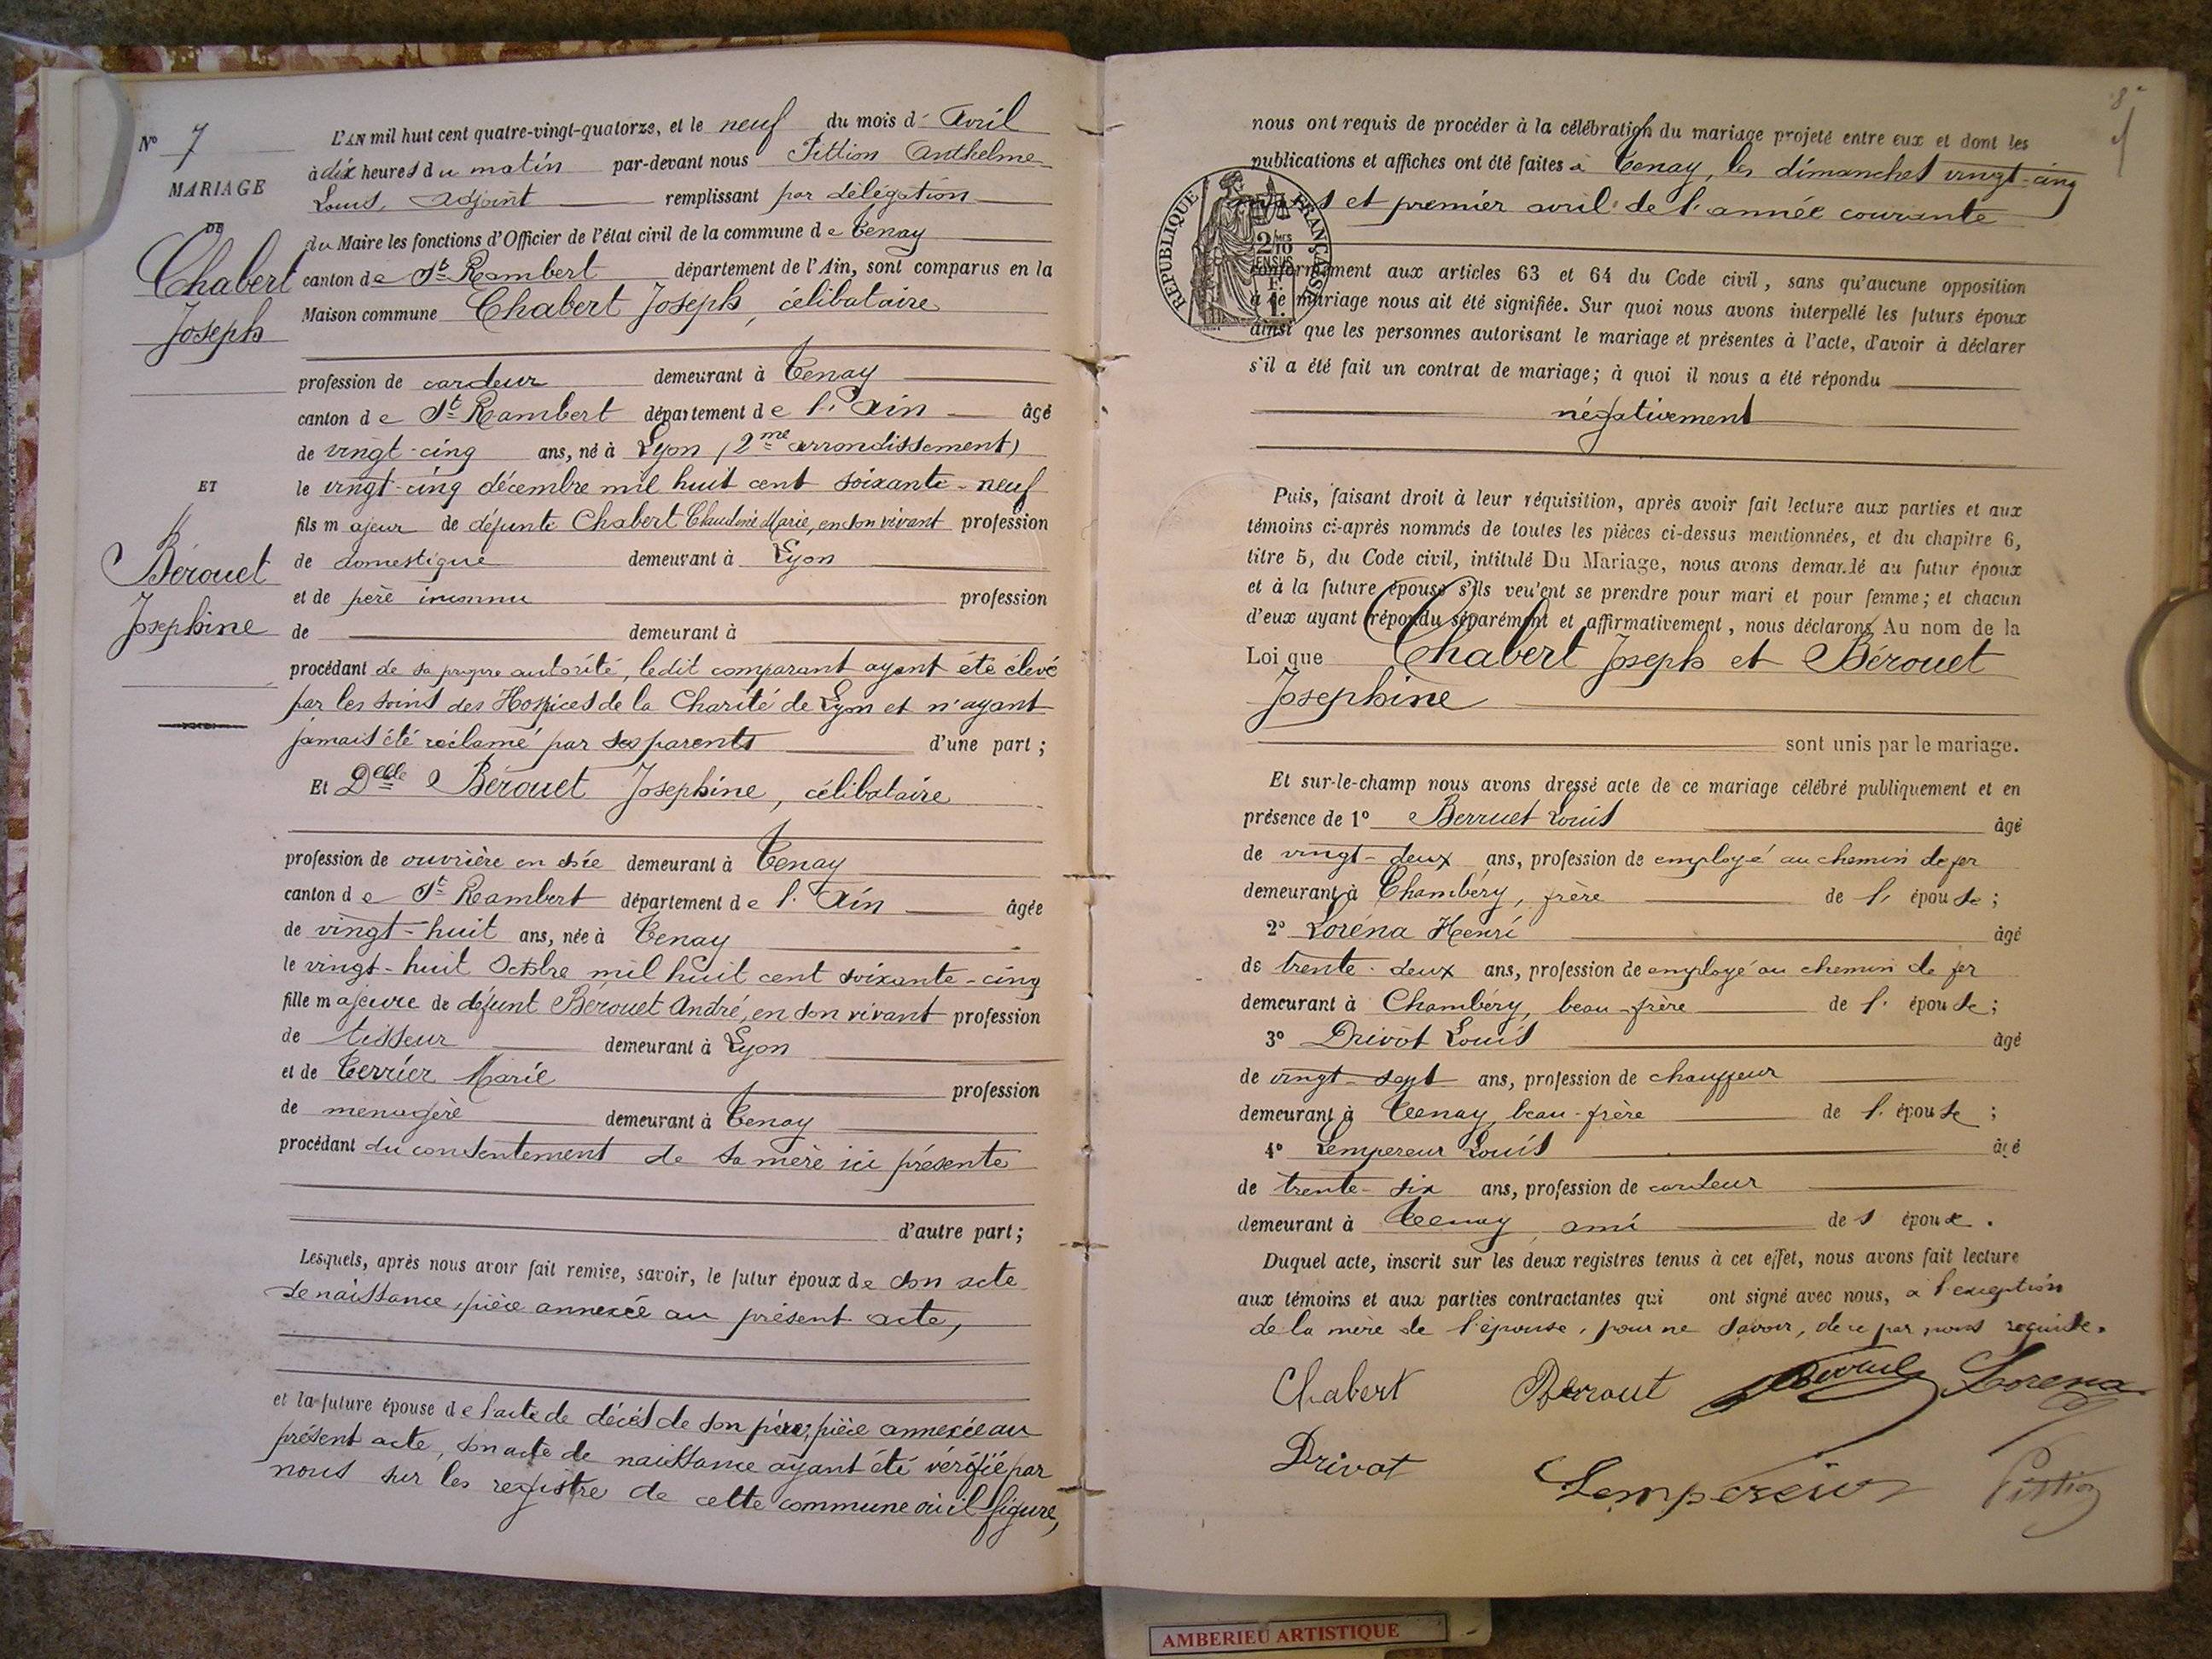 N° 7
MARIAGE
DE
Chabert
Joseph
ET
Bérouet
Josephine
L'AN mil huit cent quatre-vingt-quatorze, et le neuf du mois d' Avril
à dix heures du matin par-devant nous Pittion Anthelme
Louis, adjoint remplissant par délégation
du Maire les fonctions d'Officier de l'état civil de la commune de Tenay
canton de St Rambert département de l'Ain, sont comparus en la
Maison commune Chabert Joseph, célibataire
profession de cardeur demeurant à Tenay
canton de St Rambert département de l'Ain âgé
de vingt-cinq ans, né à Lyon (2me arrondissement)
le vingt-cinq décembre mil huit cent soixante-neuf
fils majeur de défunte Chabert Claudine Marie, en son vivant profession
de domestique demeurant à Lyon
et de père inconnu profession
de demeurant à
procédant de sa propre autorité, ledit comparant ayant été élevé
par les soins des Hospices de la Charité de Lyon et n'ayant
jamais été réclamé par ses parents d'une part ;
Et Delle Bérouet Josephine, célibataire
profession de ouvrière en demeurant à Tenay
canton de St Rambert département de l'Ain âgée
de vingt-huit ans, née à Tenay
le vingt-huit Octobre mil huit cent soixante-cinq
fille majeure de défunt Bérouet André, en son vivant profession
de tisseur demeurant à Lyon
et de Terrier Marie profession
de ménagère demeurant à Tenay
procédant du consentement de sa mère ici présente
d'autre part ;
Lesquels, après nous avoir fait remise, savoir, le futur époux de son acte
de naissance, pièce annexée au présent acte,
et la future épouse de l'acte de décès de son père, pièce annexée au
présent acte, son acte de naissance ayant été vérifié par
nous sur les registre de cette commune où il figure,
nous ont requis de procéder à la célébration du mariage projeté entre eux et dont les
publications et affiches ont été faites à Tenay, les dimanches vingt-cinq
et premier avril de l'année courante
RÉPUBLIQUE FRANÇAISE
2/10 EN SUS
conformément aux articles 63 et 64 du Code civil, sans qu'aucune opposition
à ce mariage nous ait été signifiée. Sur quoi nous avons interpellé les futurs époux
ainsi que les personnes autorisant le mariage et présentes à l'acte, d'avoir à déclarer
s'il a été fait un contrat de mariage; à quoi il nous a été répondu
négativement
Puis, faisant droit à leur réquisition, après avoir fait lecture aux parties et aux
témoins ci-après nommés de toutes les pièces ci-dessus mentionnées, et du chapitre 6,
titre 5, du Code civil, intitulé Du Mariage, nous avons demandé au futur époux
et à la future épouse s'ils veulent se prendre pour mari et pour femme; et chacun
d'eux ayant répondu séparément et affirmativement, nous déclarons Au nom de la
Loi que Chabert Joseph et Bérouet
Josephine
sont unis par le mariage.
Et sur-le-champ nous avons dressé acte de ce mariage célébré publiquement et en
présence de 1° Berruet Louis âgé
de vingt-deux ans, profession de employé au chemin de fer
demeurant à Chambéry, frère de l'épouse ;
2° Loréna Henri âgé
de trente-deux ans, profession de employé au chemin de fer
demeurant à Chambéry, beau-frère de l'épouse ;
3° Drivot Louis âgé
de vingt-sept ans, profession de chauffeur
demeurant à Tenay, beau-frère de l'épouse ;
4° Lempereur Louis âgé
de trente-six ans, profession de cardeur
demeurant à Tenay, ami des époux.
Duquel acte, inscrit sur les deux registres tenus à cet effet, nous avons fait lecture
aux témoins et aux parties contractantes qui ont signé avec nous, à l'exception
de la mère de l'épouse, pour ne savoir, de ce par nous requise.
Chabert Lorena
Drivot Lempereur Pittion
AMBERIEU ARTISTIQUE